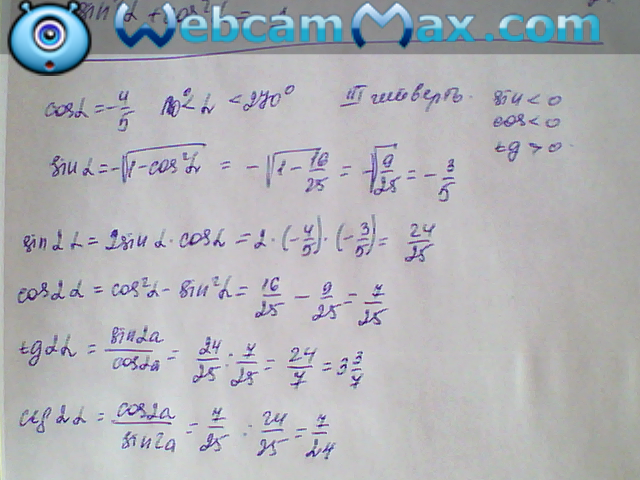 sin²α + cos²α =
WebcamMax.com
cosα = -4/5 180° < α < 270° III четверть. sin < 0
cos < 0
tg > 0
sinα = -√(1-cos²α) = -√(1-16/25) = -√(9/25) = -3/5
sin2α = 2sinα·cosα = 2·(-4/5)·(-3/5) = 24/25
cos2α = cos²α - sin²α = 16/25 - 9/25 = 7/25
tg2α = sin2a/cos2a = 24/25 : 7/25 = 24/7 = 3 3/7
ctg2α = cos2a/sin2a = 7/25 : 24/25 = 7/24